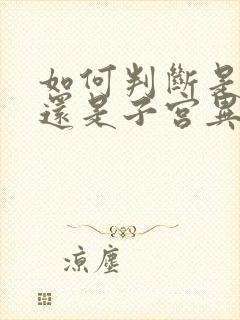 如何判斷是
還是子宮異
涼塵